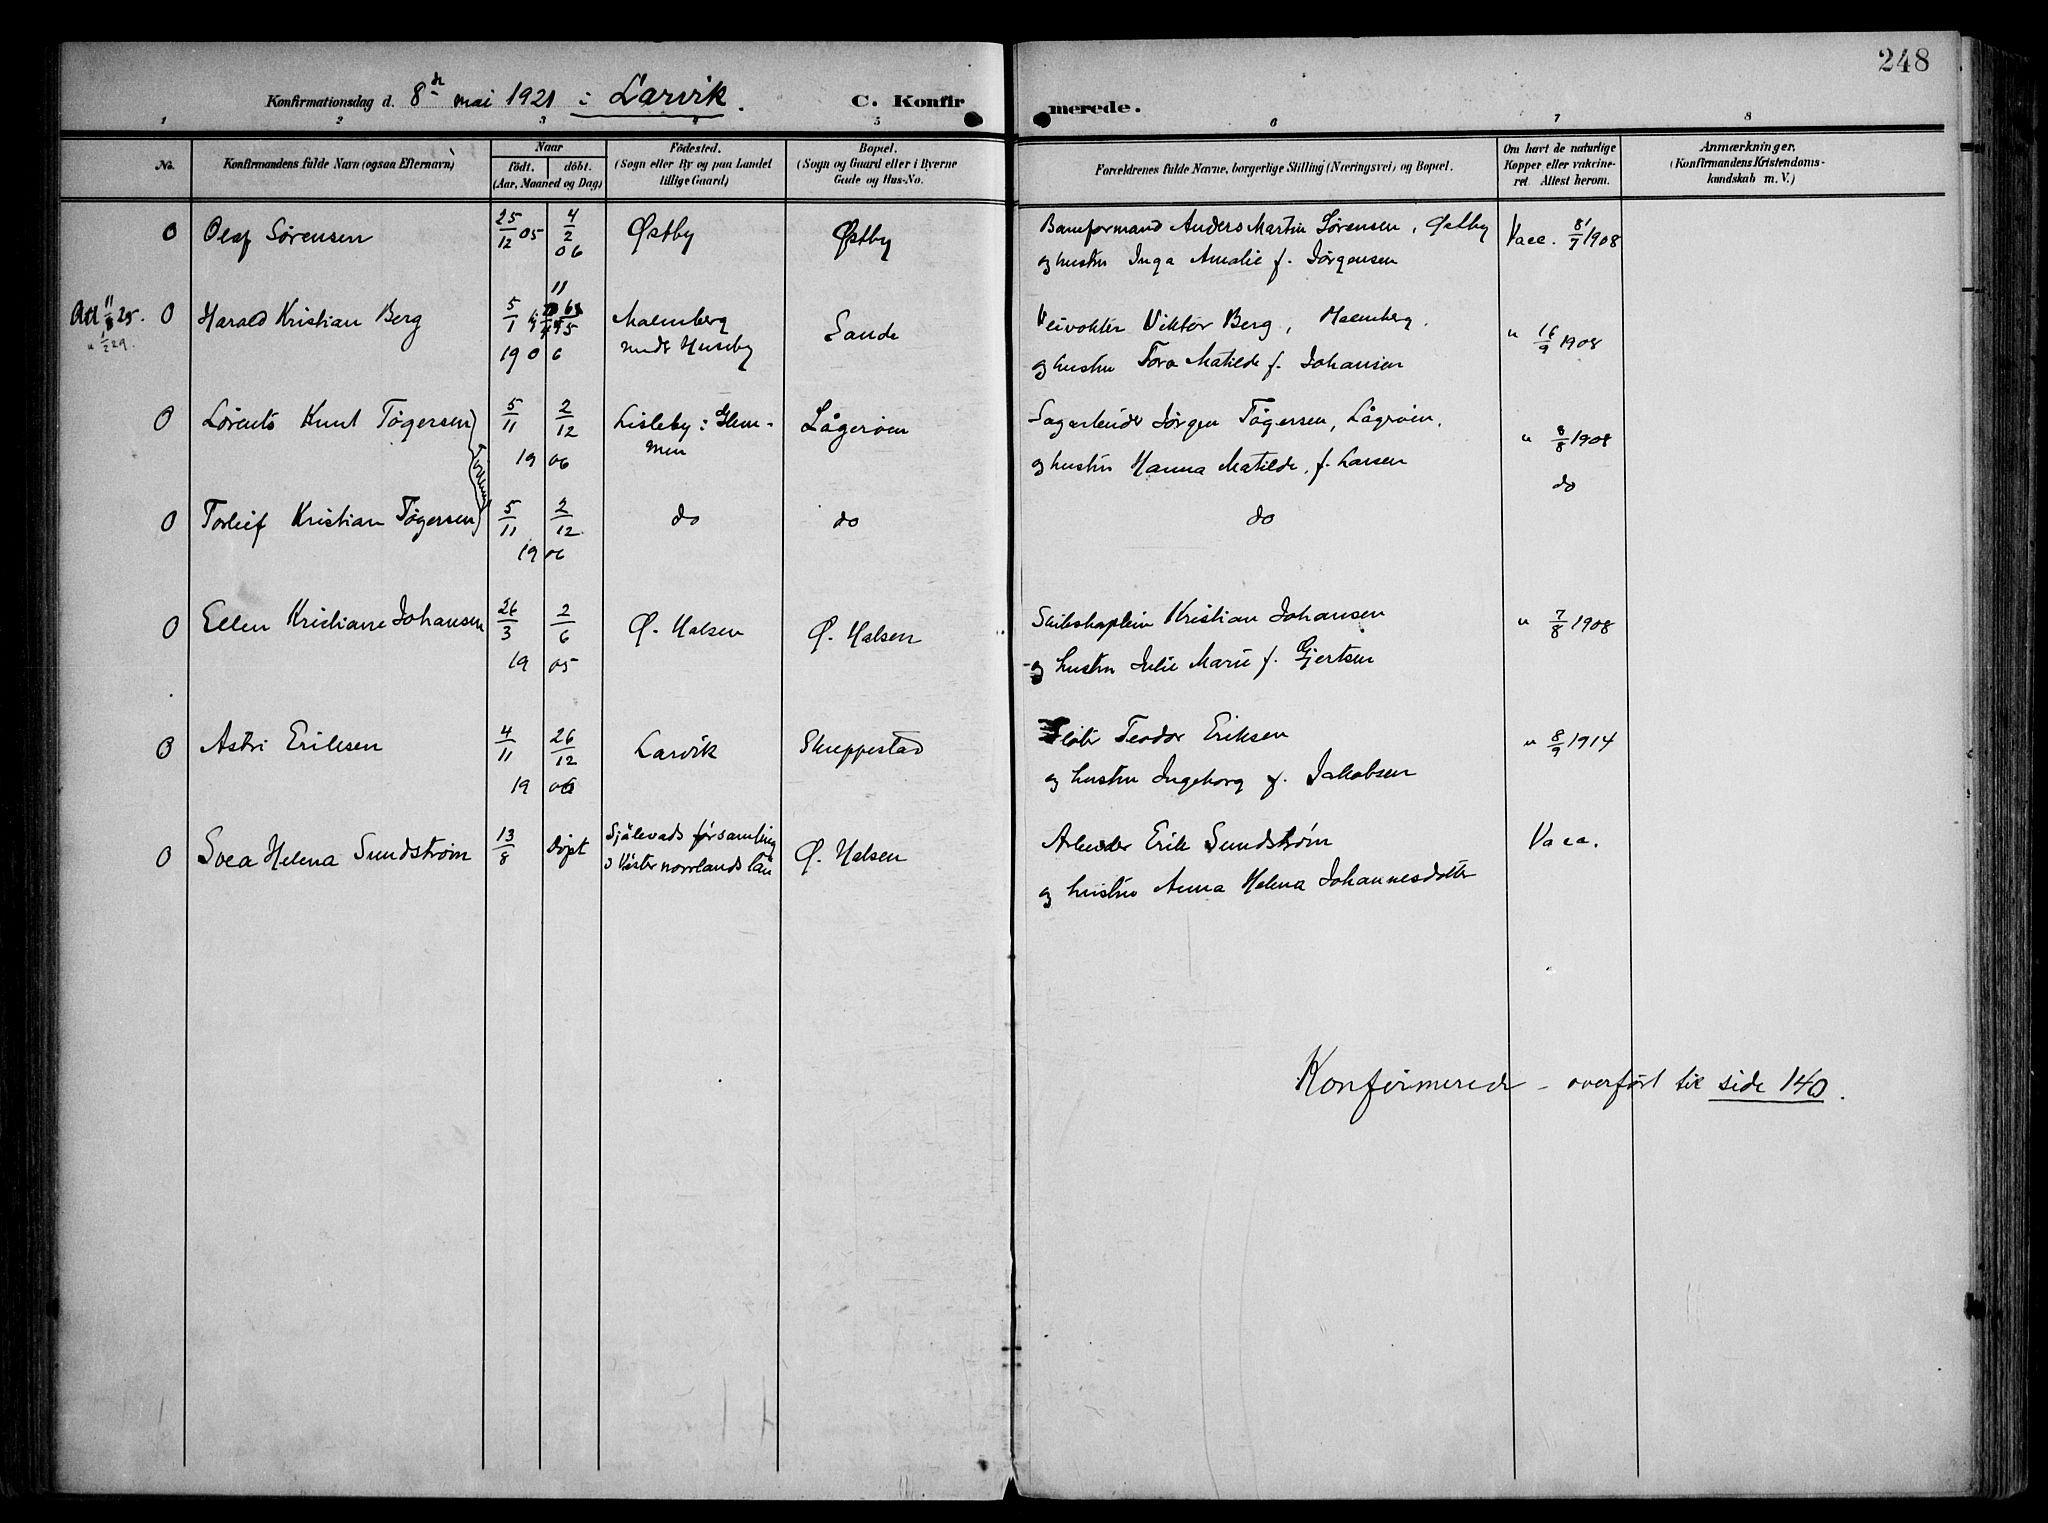 248
Konfirmationsdag d. 8de mai 1921 i Larvik. C. Konfirmerede.
1 2 3 4 5 6 7 8
No.
Konfirmandens fulde Navn (ogsaa Efternavn)
Naar
født. døbt.
(Aar, Maaned og Dag)
Fødested.
(Sogn eller By og paa Landet
tillige Gaard)
Bopæl.
(Sogn og Gaard eller i Byerne
Gade og Hus-No.
Forældrenes fulde Navne, borgerlige Stilling (Næringsvei) og Bopæl.
Om havt de naturlige
Kopper eller vakcine-
ret Attest herom.
Anmærkninger.
(Konfirmandens Kristendoms-
kundskab m. V.)
0 Olaf Sørensen 25/12 05 4/2 06 Østby Østby Anders Martin Sørensen, Østby Vacc. 8/7 1908
og hustru Inga Amalie f. Jørgensen
Att 11/8 25. 0 Harald Kristian Berg 5/1 Malmberg Sande Veivokter Viktor Berg, Malmberg. " 16/9 1908
" 1/2 29. 1906 under Huseby og hustru Tora Matilde f. Johansen
0 Lorents Knut Tøgersen 5/11 2/12 Lisleby i Glem- Lågerøen Sagarbeider Jørgen Tøgersen, Lågrøen. " 8/8 1908
19 06 men og hustru Hanna Matilde, f. Larsen
Tvilling
0 Torleif Kristian Tøgersen 5/11 2/12 do do do do
19 06
0 Ellen Kristiane Johansen 26/3 2/6 Ø. Halsen Ø. Halsen Skibskaptein Kristian Johansen " 7/8 1908
19 05 og hustru Julie Marie f. Gjertsen
0 Astri Eriksen 4/11 26/12 Larvik Skuppestad Teodor Eriksen " 8/9 1914
19 06 og hustru Ingeborg f. Jakobsen
0 Svea Helena Sundstrøm 13/8 Døpt Själevads församling Ø. Halsen Arbeider Erik Sundstrøm Vacc.
i Västernorrlands län og hustru Anna Helena Johannesdotter
Konfirmerede - overført til side 140.